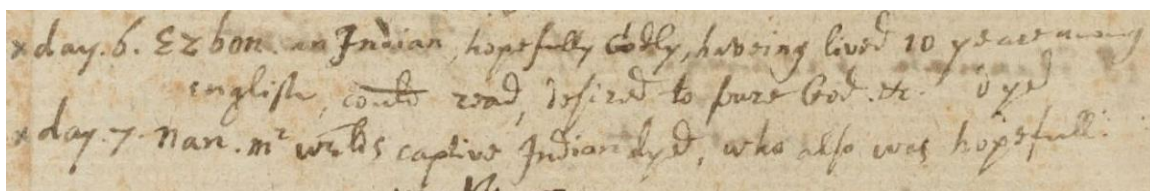 x day. 6. Ezbon. an Indian, hopefully Godly, having lived 10 yeares among
english, could read, desired to feare God. &c. dyed
x day. 7. Nan. mr welds captive Indian dyed, who also was hopefull: